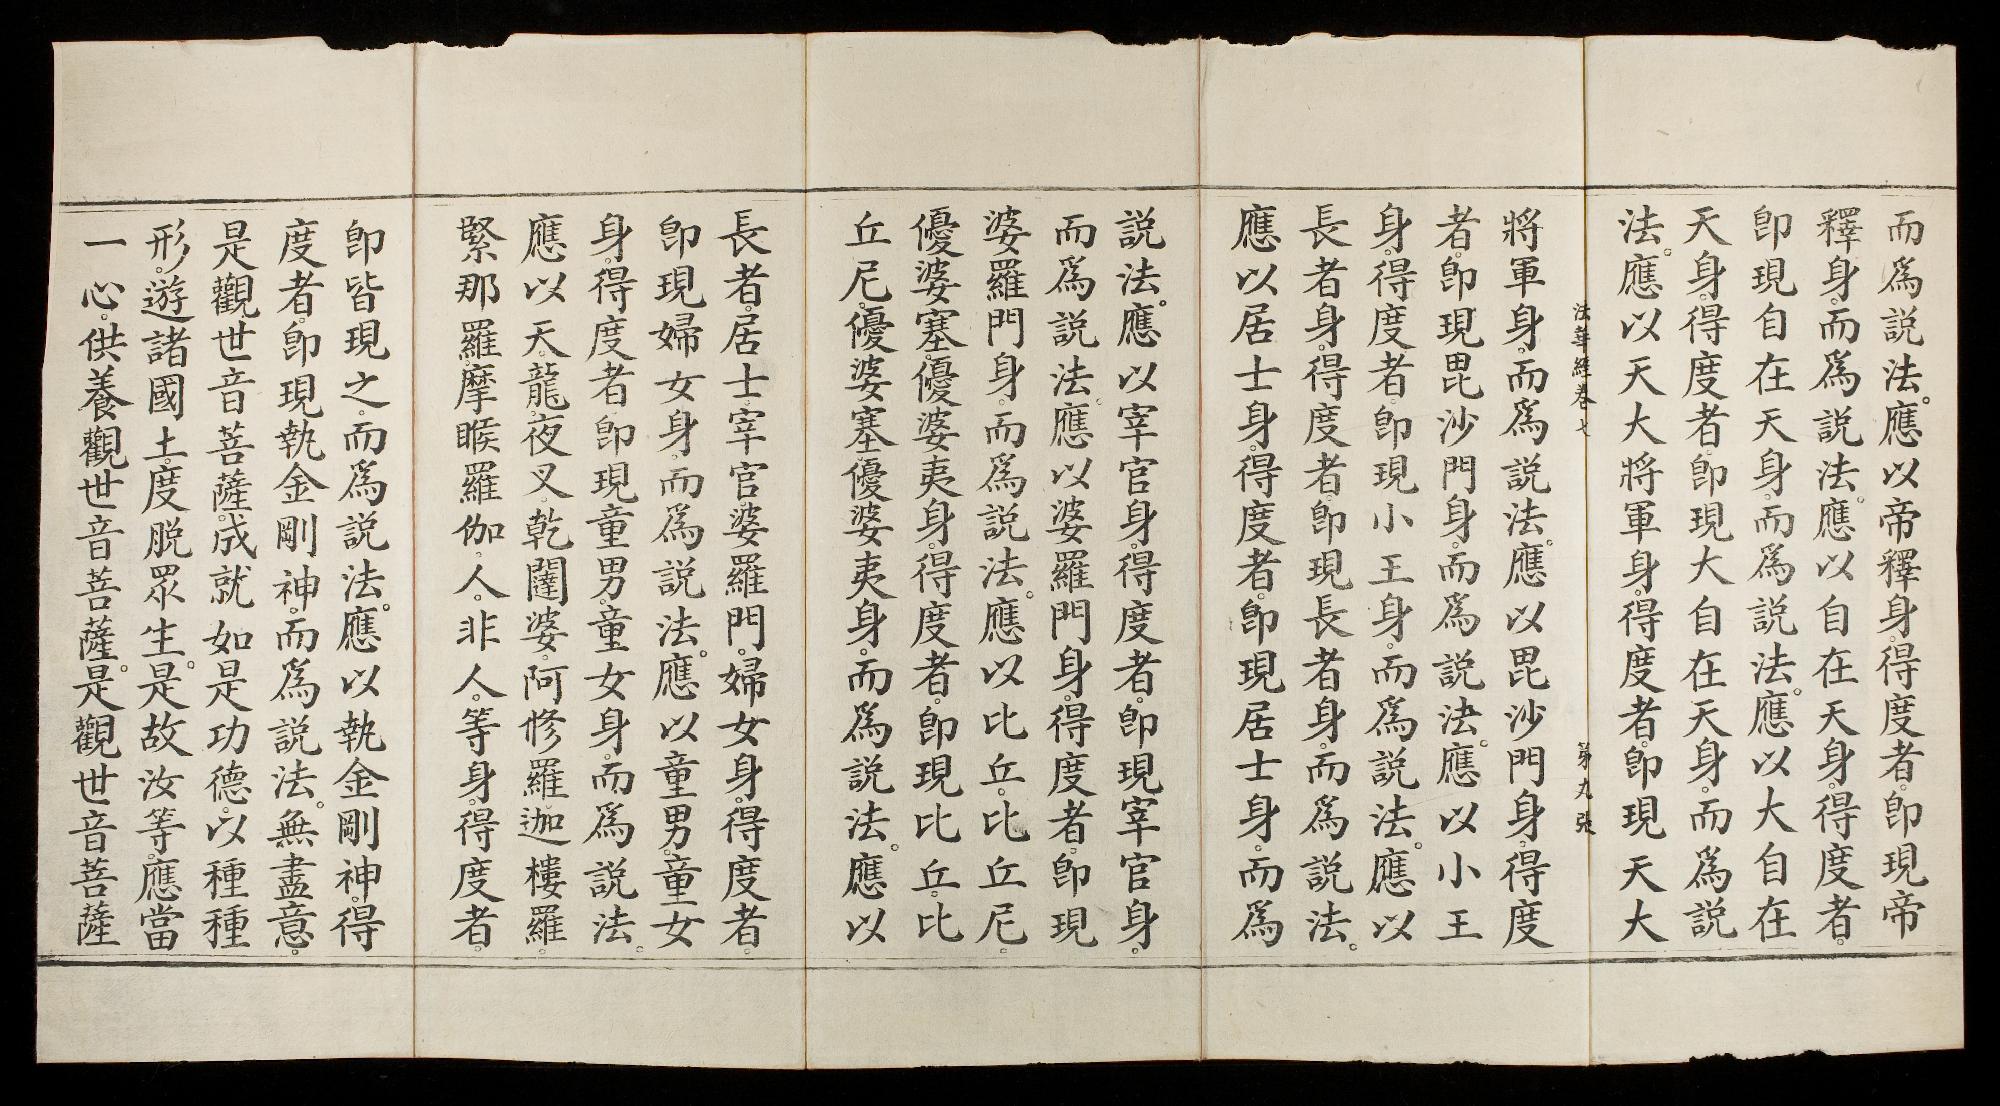 而爲説法。應以帝釋身。得度者。卽現帝
釋身。而爲説法。應以自在天身。得度者。
卽現自在天身。而爲説法。應以大自在
天身。得度者。卽現大自在天身。而爲説
法。應以天大將軍身。得度者。卽現天大
法華經卷七
第九張
將軍身。而爲説法。應以毘沙門身。得度
者。卽現毘沙門身。而爲説法。應以小王
身。得度者。卽現小王身。而爲説法。應以
長者身。得度者。卽現長者身。而爲説法。
應以居士身。得度者。卽現居士身。而爲
説法。應以宰官身。得度者。卽現宰官身。
而爲説法。應以婆羅門身。得度者。卽現
婆羅門身。而爲説法。應以比丘。比丘尼。
優婆塞。優婆夷身。得度者。卽現比丘。比
丘尼。優婆塞。優婆夷身。而爲説法。應以
長者。居士。宰官婆羅門。婦女身。得度者。
卽現婦女身。而爲説法。應以童男。童女
身。得度者。卽現童男。童女身。而爲説法。
應以天。龍。夜叉。乾闥婆。阿修羅。迦樓羅。
緊那羅。摩睺羅伽。人。非人。等身。得度者。
卽皆現之。而爲説法。應以執金剛神。得
度者。卽現執金剛神。而爲説法。無盡意。
是觀世音菩薩。成就如是功德。以種種
形。遊諸國土。度脱眾生。是故汝等。應當
一心。供養觀世音菩薩。是觀世音菩薩